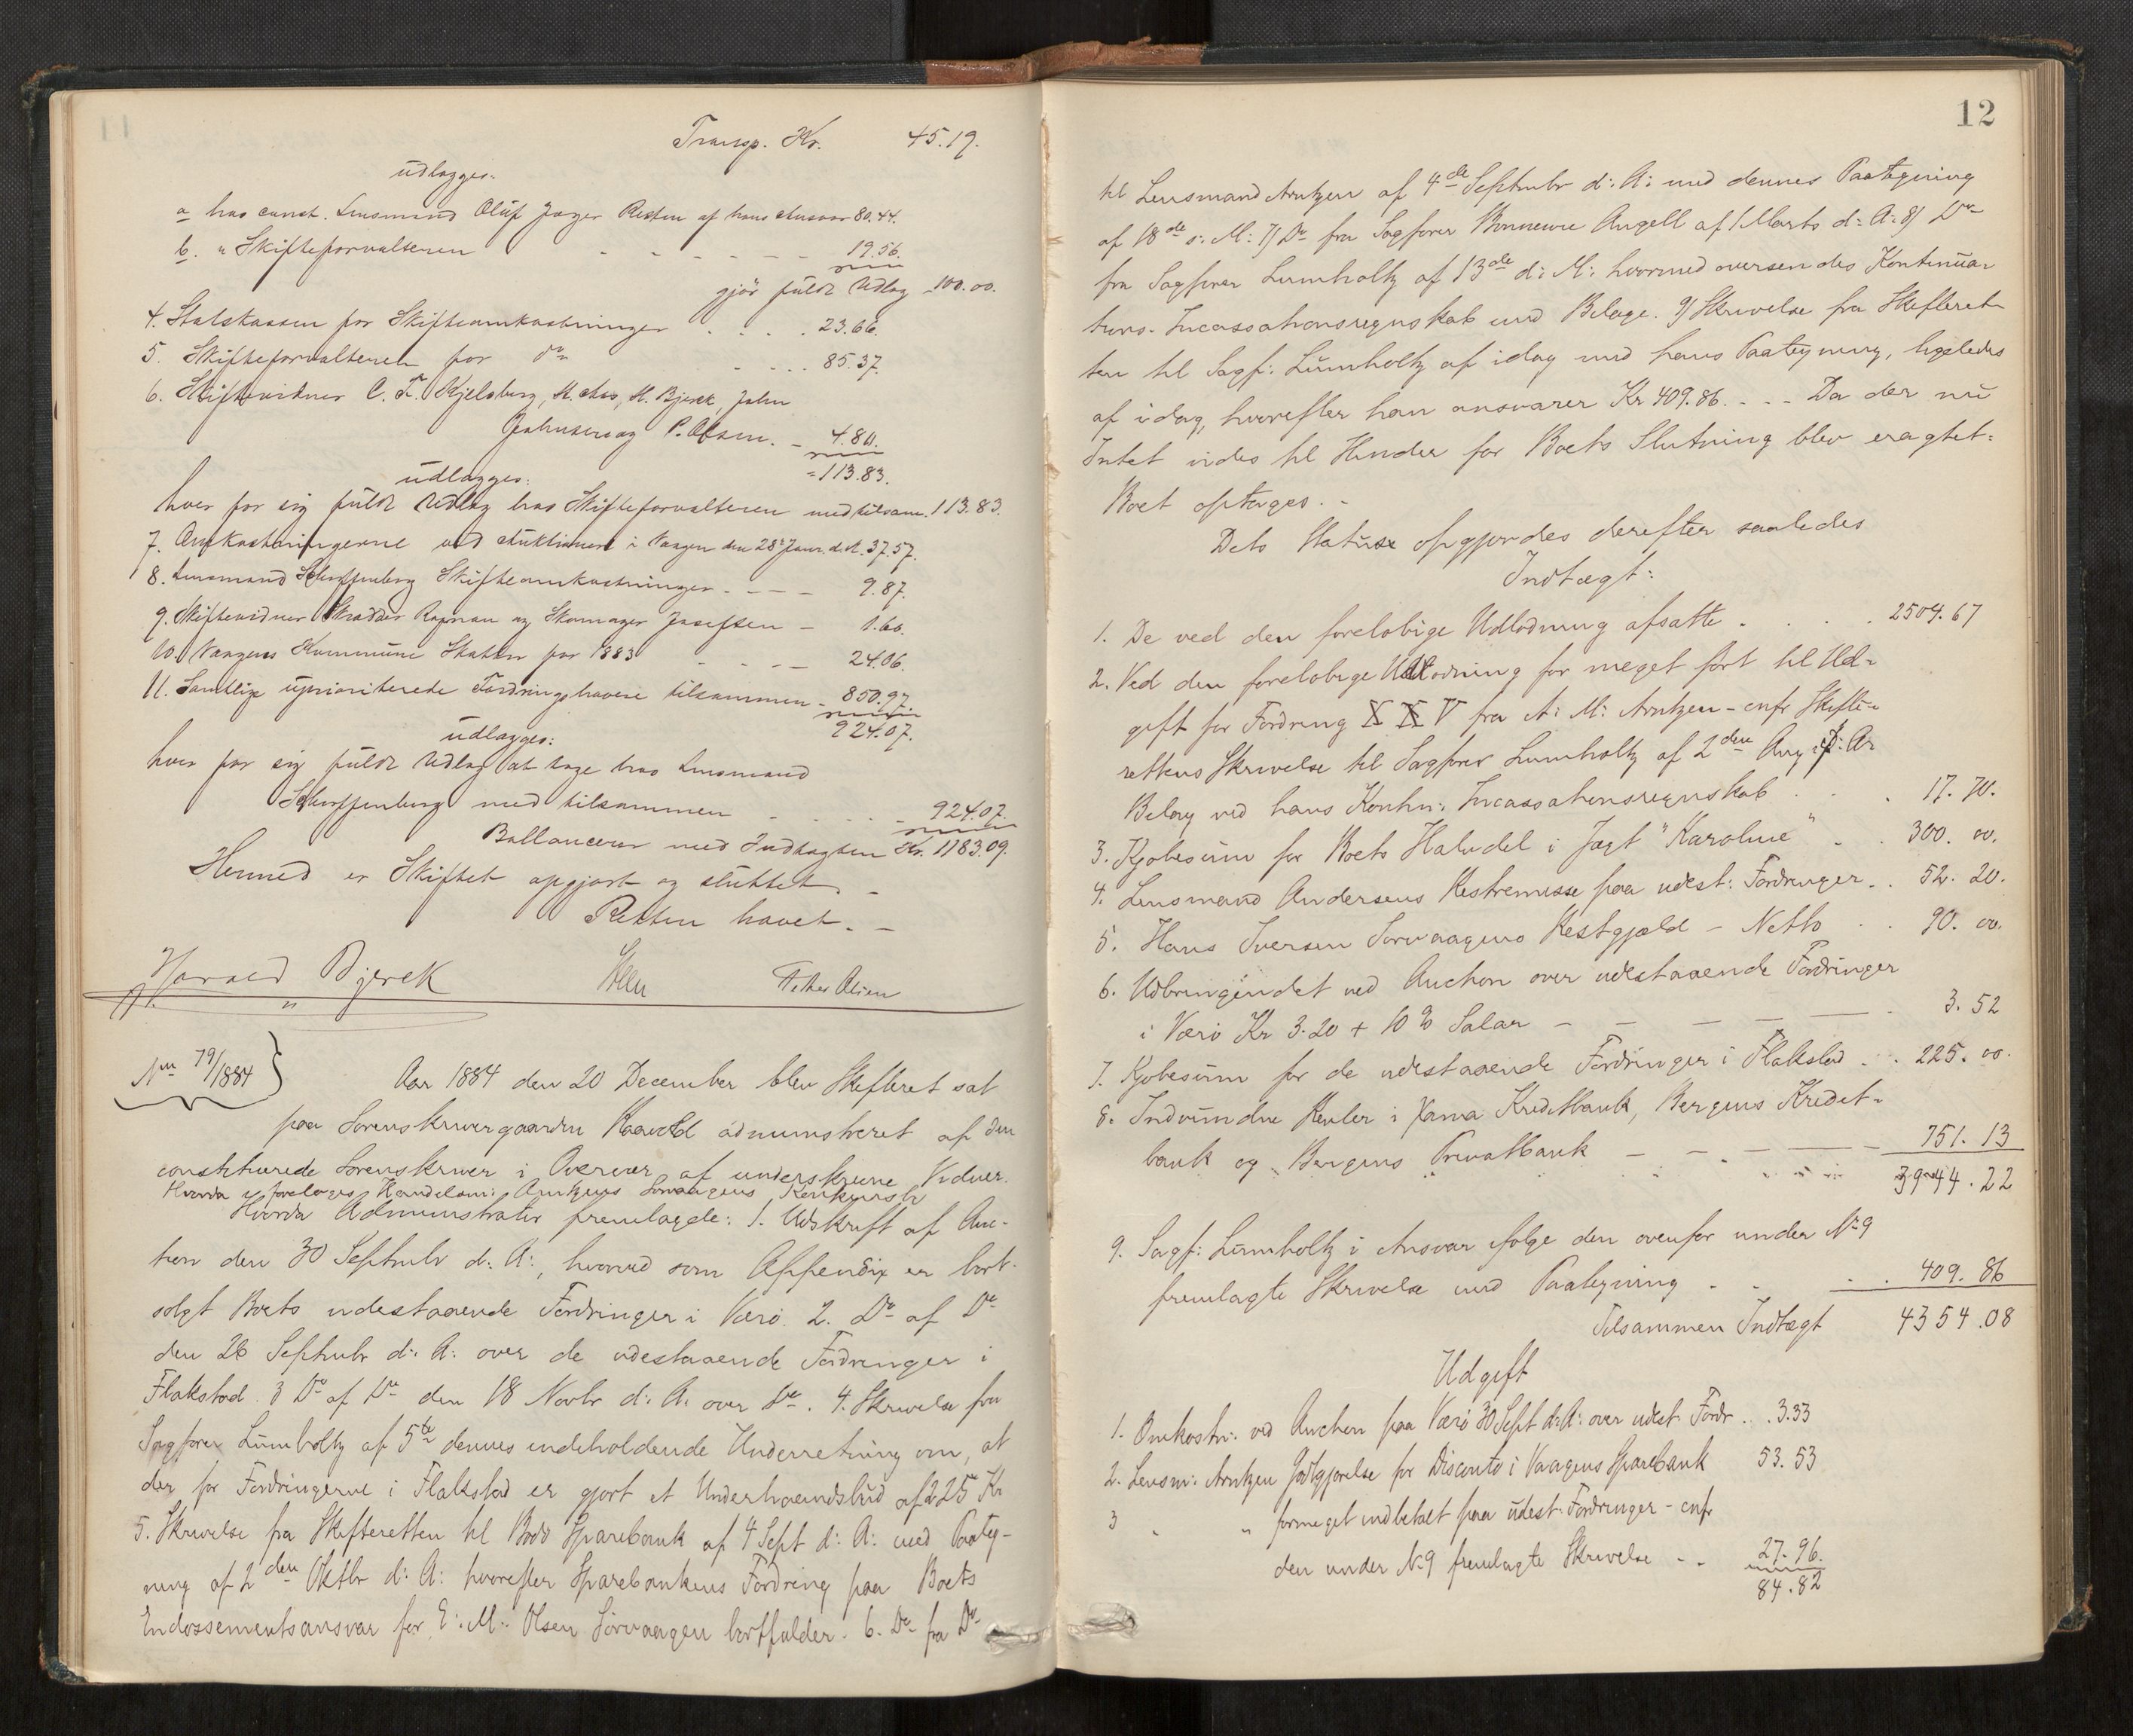 Transp. Kr. 45.19.
udlægges.
a hos const. Lensmand Oluf Jæger Resten af hans Ansvar 80.44.
b. " Skifteforvalteren - - - - - - 19.56.
gjør fuldt Udlæg - 100.00.
4. Statskassen for Skifteomkostninger . . . . 23.66.
5. Skifteforvalteren for do - . . . . 85.37.
6. Skiftevidner C. F. Kjelsberg, M. Aas, H. Bjerck, John
Johnsen og P. Olsen. - 4.80.
= 113.83.
udlægges:
hver for sig fuldt Udlæg hos Skifteforvalteren med tilsam. 113.83.
7. Omkostningerne ved Auktionen i Vaagen den 28de Janr. d. A. 37.57.
8. Lensmand Scharffenberg Skifteomkostninger - - - - 9.87.
9. Skiftevidner Skrædder Rognan og Skomager Josefsen - 1.60.
10. Vaagens Kommune Skatten for 1883 - - - - 24.06.
11. Samtlige uprioriterede Fordringshavere tilsammen - 850.97.
924.07.
udlægges:
hver for sig fuldt Udlæg at tage hos Lensmand
Scharffenberg med tilsammen - . . . . - 924.07.
Ballancerer med Indtægten Kr. 1183.09.
Hermed er Skiftet opgjort og sluttet. -
Retten hævet. -
Harald Bjerck Peter Olsen
No 79/1884 } Aar 1884 den 20 December blev Skifteret sat
paa Sorenskrivergaarden administreret af den
constituerede Sorenskriver i Overvær af underskrevne Vidner.
Hvorda foretoges Handelsm: Arntzens Sørvaagens Konkursbo
Hvorda Administrator fremlagde: 1. Udskrift af Auc-
tion den 30 Septembr d: A:, hvorved som Appendix er bort-
solgt Boets udestaaende Fordringer i Værø. 2. Do af Do
den 26 Septembr d: A: over de udestaaende Fordringer i
Flakstad 3 Do af Do den 18 Novbr d: A: over Do. 4. Skrivelse fra
Sagfører Lumholtz af 5te dennes indeholdende Underretning om, at
der for Fordringerne i Flakstad er gjort et Underhaandsbud af 225 Kr
5. Skrivelse fra Skifteretten til Bodø Sparebank af 4 Sept d: A: med Paateg-
ning af 2den Oktbr d: A: hvorefter Sparebankens Fordring paa Boets
Endossementsansvar for E: M: Olsen Sørvaagen bortfalder. 6. Do fra Do
12
til Lensmand Arntzen af 4de Septembr d: A: med dennes Paategning
af 18de s: M: 7/ Do fra Sagfører Bonnevie Angell af 1 Marts d: A: 8/ Do
fra Sagfører Lumholtz af 13de d: M: hvormed oversendes Kontinua-
tions-Incassationsregnskab med Bilage. 9/ Skrivelse fra Skifteret-
ten til Sagf: Lumholtz af idag med hans Paategning, ligeledes
af idag, hvorefter han ansvarer Kr 409.86. - - - Da der nu
Intet vides til Hinder for Boets Slutning blev eragtet:
Boet optages. -
Dets Status opgjordes derefter saaledes
Indtægt:
1. De ved den foreløbige Udlodning afsatte . . . . . 2504.67
2. Ved den foreløbige Udlodning for meget ført til Ud-
gift for Fordring X X V fra A: M: Arntzen - cnfr Skifte-
rettens Skrivelse til Sagfører Lumholtz af 2den Aug d: A:
Bilag ved hans Kontin: Incassationsregnskab . . . 17. 70.
3. Kjøbesum for Boets Halvdel i Jagt "Karoline" . . 300. 00.
4. Lensmand Andersens Restremisse paa udest: Fordringer . . 52. 20.
5. Hans Iversen Sørvaagens Restgjæld - Netto . . 90. 00.
6. Udbringendet ved Auction over udestaaende Fordringer
i Værø Kr 3.20 + 10 % Salær - - - - - 3. 52
7. Kjøbesum for de udestaaende Fordringer i Flakstad . . 225. 00.
8. Indvundne Renter i Xania Kreditbank, Bergens Kredit-
bank og Bergens Privatbank - - - - - 751. 13
3944. 22
9. Sagf: Lumholtz i Ansvar ifølge den ovenfor under No 9
fremlagte Skrivelse med Paategning - - . . 409. 86
Tilsammen Indtægt 4354.08
Udgift
1. Omkostn: ved Auction paa Værø 30 Sept d: A: over udest: Fordr . . . 3.33
2. Lensm: Arntzen Godtgjørelse for Disconto i Vaagens Sparebank 53. 53
3 " " formeget indbetalt paa udest: Fordringer - cnfr
den under No 9 fremlagte Skrivelse - - 27. 96.
84. 82